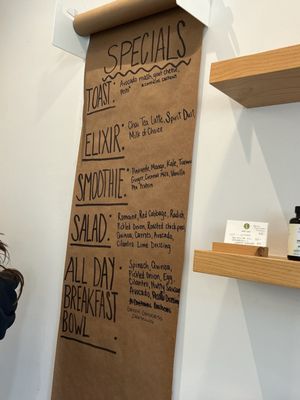 SPECIALS
TOAST:
Avocado mash, goat cheese,
Pesto*
ELIXIR:
Chai Tea Latte, Spirit Dust,
Milk of Choice
SMOOTHIE:
Pineapple, Mango, Kale,
Ginger, Coconut Milk, Vanilla
Protein
SALAD:
Romaine, Red Cabbage, Radish,
Pickled Onion, Roasted chick peas
Quinoa, Carrots, Avocado,
Cilantro Lime Dressing
ALL DAY
BREAKFAST
BOWL:
Spinach, Quinoa,
Pickled Onion, Egg,
Cilantro,
Avocado,